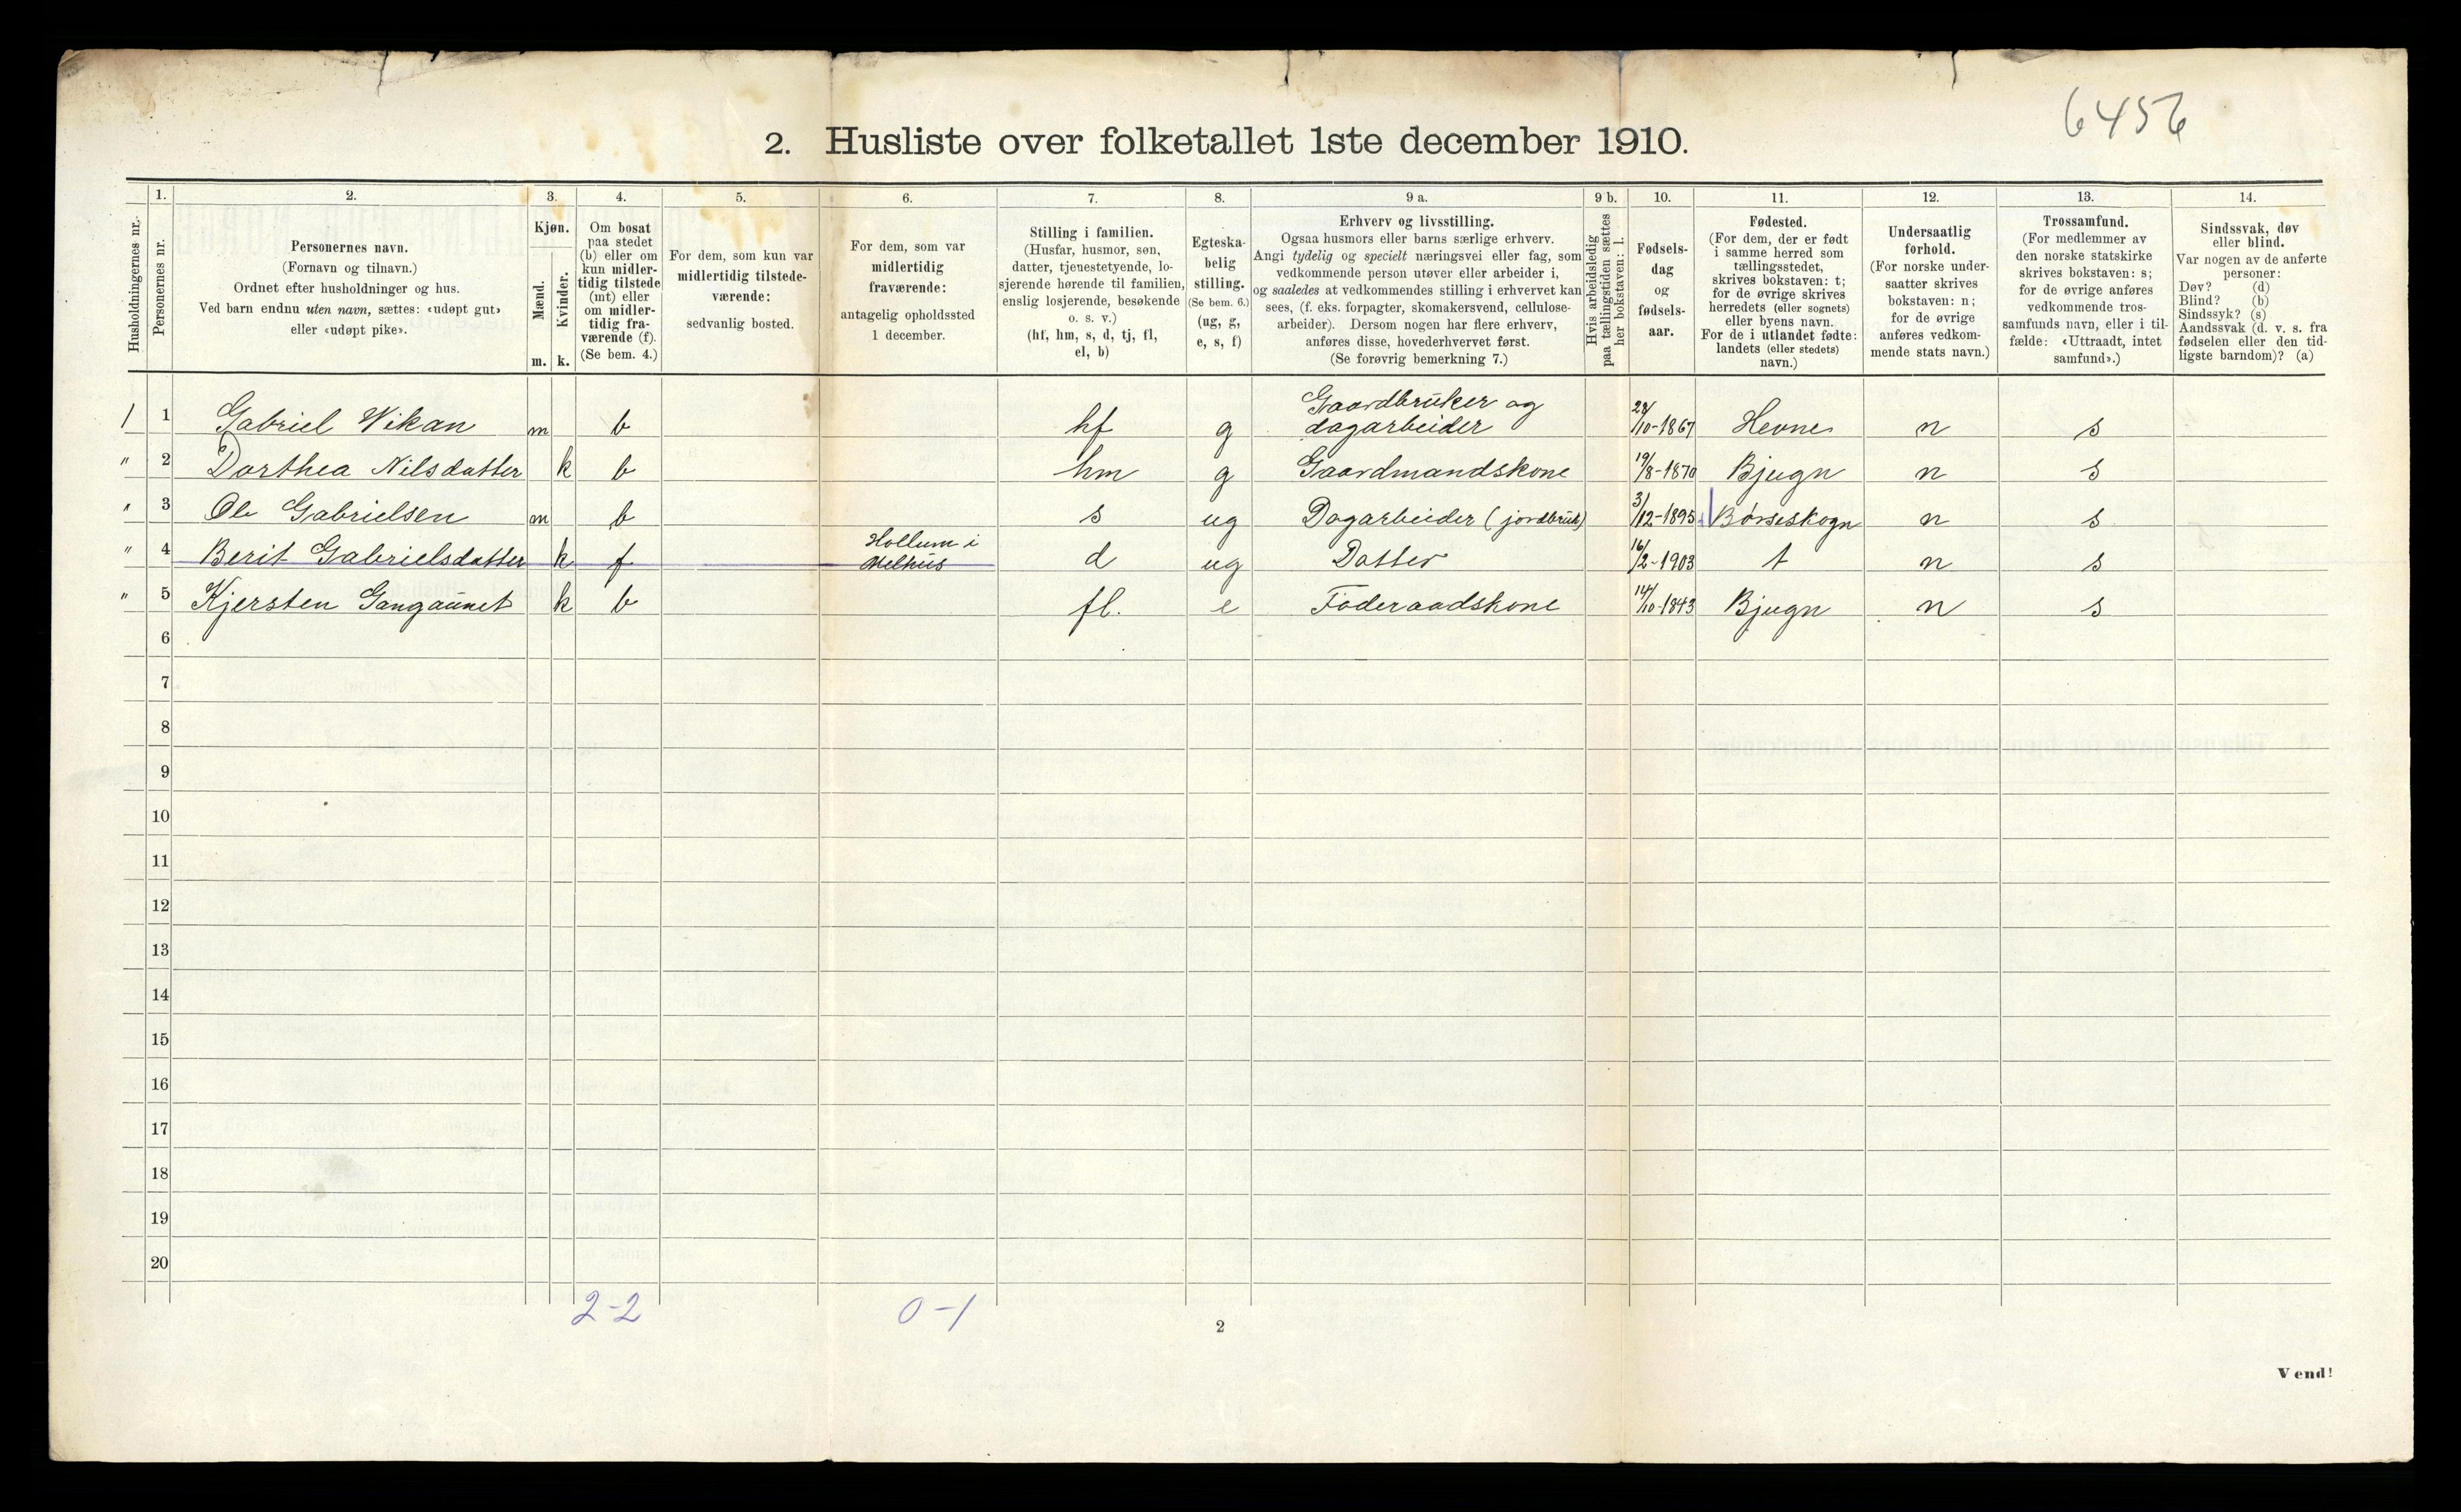 6456
2. Husliste over folketallet 1ste december 1910.
Husholdningernes nr.
1.
Personernes nr.
2.
Personernes navn.
(Fornavn og tilnavn.)
Ordnet efter husholdninger og hus.
Ved barn endnu uten navn, sættes: «udøpt gut»
eller «udøpt pike».
3.
Kjøn.
Mænd.
m.
Kvinder.
k.
4.
Om bosat
paa stedet
(b) eller om
kun midler-
tidig tilstede
(mt) eller
om midler-
tidig fra-
værende (f).
(Se bem. 4.)
5.
For dem, som kun var
midlertidig tilstede-
værende:
sedvanlig bosted.
6.
For dem, som var
midlertidig
fraværende:
antagelig opholdssted
1 december.
7.
Stilling i familien.
(Husfar, husmor, søn,
datter, tjenestetyende, lo-
sjerende hørende til familien,
enslig losjerende, besøkende
o. s. v.)
(hf, hm, s, d, tj, fl,
el, b)
8.
Egteska-
belig
stilling.
(Se bem. 6.)
(ug, g,
e, s, f)
9 a.
Erhverv og livsstilling.
Ogsaa husmors eller barns særlige erhverv.
Angi tydelig og specielt næringsvei eller fag, som
vedkommende person utøver eller arbeider i,
og saaledes at vedkommendes stilling i erhvervet kan
sees, (f. eks. forpagter, skomakersvend, cellulose-
arbeider). Dersom nogen har flere erhverv,
anføres disse, hovederhvervet først.
(Se forøvrig bemerkning 7.)
9 b.
Hvis arbeidsledig
paa tællingstiden sættes
her bokstaven: l.
10.
Fødsels-
dag
og
fødsels-
aar.
11.
Fødested.
(For dem, der er født
i samme herred som
tællingsstedet,
skrives bokstaven: t;
for de øvrige skrives
herredets (eller sognets)
eller byens navn.
For de i utlandet fødte:
landets (eller stedets)
navn.)
12.
Undersaatlig
forhold.
(For norske under-
saatter skrives
bokstaven: n;
for de øvrige
anføres vedkom-
mende stats navn.)
13.
Trossamfund.
(For medlemmer av
den norske statskirke
skrives bokstaven: s;
for de øvrige anføres
vedkommende tros-
samfunds navn, eller i til-
fælde: «Uttraadt, intet
samfund».)
14.
Sindssvak, døv
eller blind.
Var nogen av de anførte
personer:
Døv? (d)
Blind? (b)
Sindssyk? (s)
Aandssvak (d. v. s. fra
fødselen eller den tid-
ligste barndom)? (a)
1 1 Gabriel Wikan m b hf g Gaardbruker og dagarbeider 28/10-1867 Hevne n s
" 2 Dorthea Nilsdatter k b hm g Gaardmandskone 19/8-1870 Bjugn n s
" 3 Ole Gabrielsen m b s ug Dagarbeider (jordbruk) 3/12-1895 Børseskogn n s
" 4 Berit Gabrielsdatter k f Hollum i Melhus d ug Datter 16/2-1903 t n s
" 5 Kjersten Gangaunet k b fl. e Föderaadskone 14/10-1843 Bjugn n s
6
7
8
9
10
11
12
13
14
15
16
17
18
19
20
2-2 0-1
2
Vend!